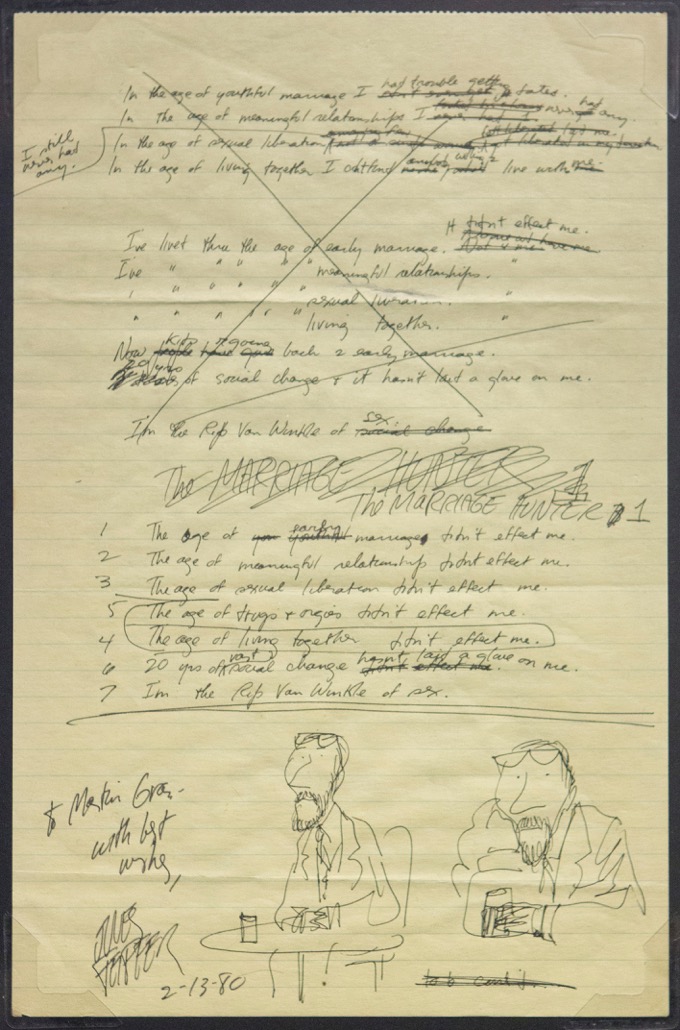 had trouble getting
In the age of youthful marriage I dates.
had
In the age of meaningful relationships I never any
I still never had any.
In the age of sexual liberation
In the age of living together I live with me.
It didn't effect me.
I've lived thru the age of early marriage.
I've " " " " " meaningful relationships.
" " " " " sexual liberation. "
" " " " " living together. "
kids r going
Now back 2 early marriage.
20 yrs
of social change & it hasn't laid a glove on me.
sex.
I'm the Rip Van Winkle of social change
The MARRIAGE HUNTER 1
The MARRIAGE HUNTER 1
early
1 The age of youthful marriage didn't effect me.
2 The age of meaningful relationships didnt effect me.
3 The age of sexual liberation didn't effect me.
5 The age of drugs & orgies didn't effect me.
4 The age of living together didn't effect me.
vast hasn't laid a glove
6 20 yrs of social change didn't effect me. on me.
7 I'm the Rip Van Winkle of sex.
to Martin
with best
wishes,
JULES
FEIFFER
2-13-80